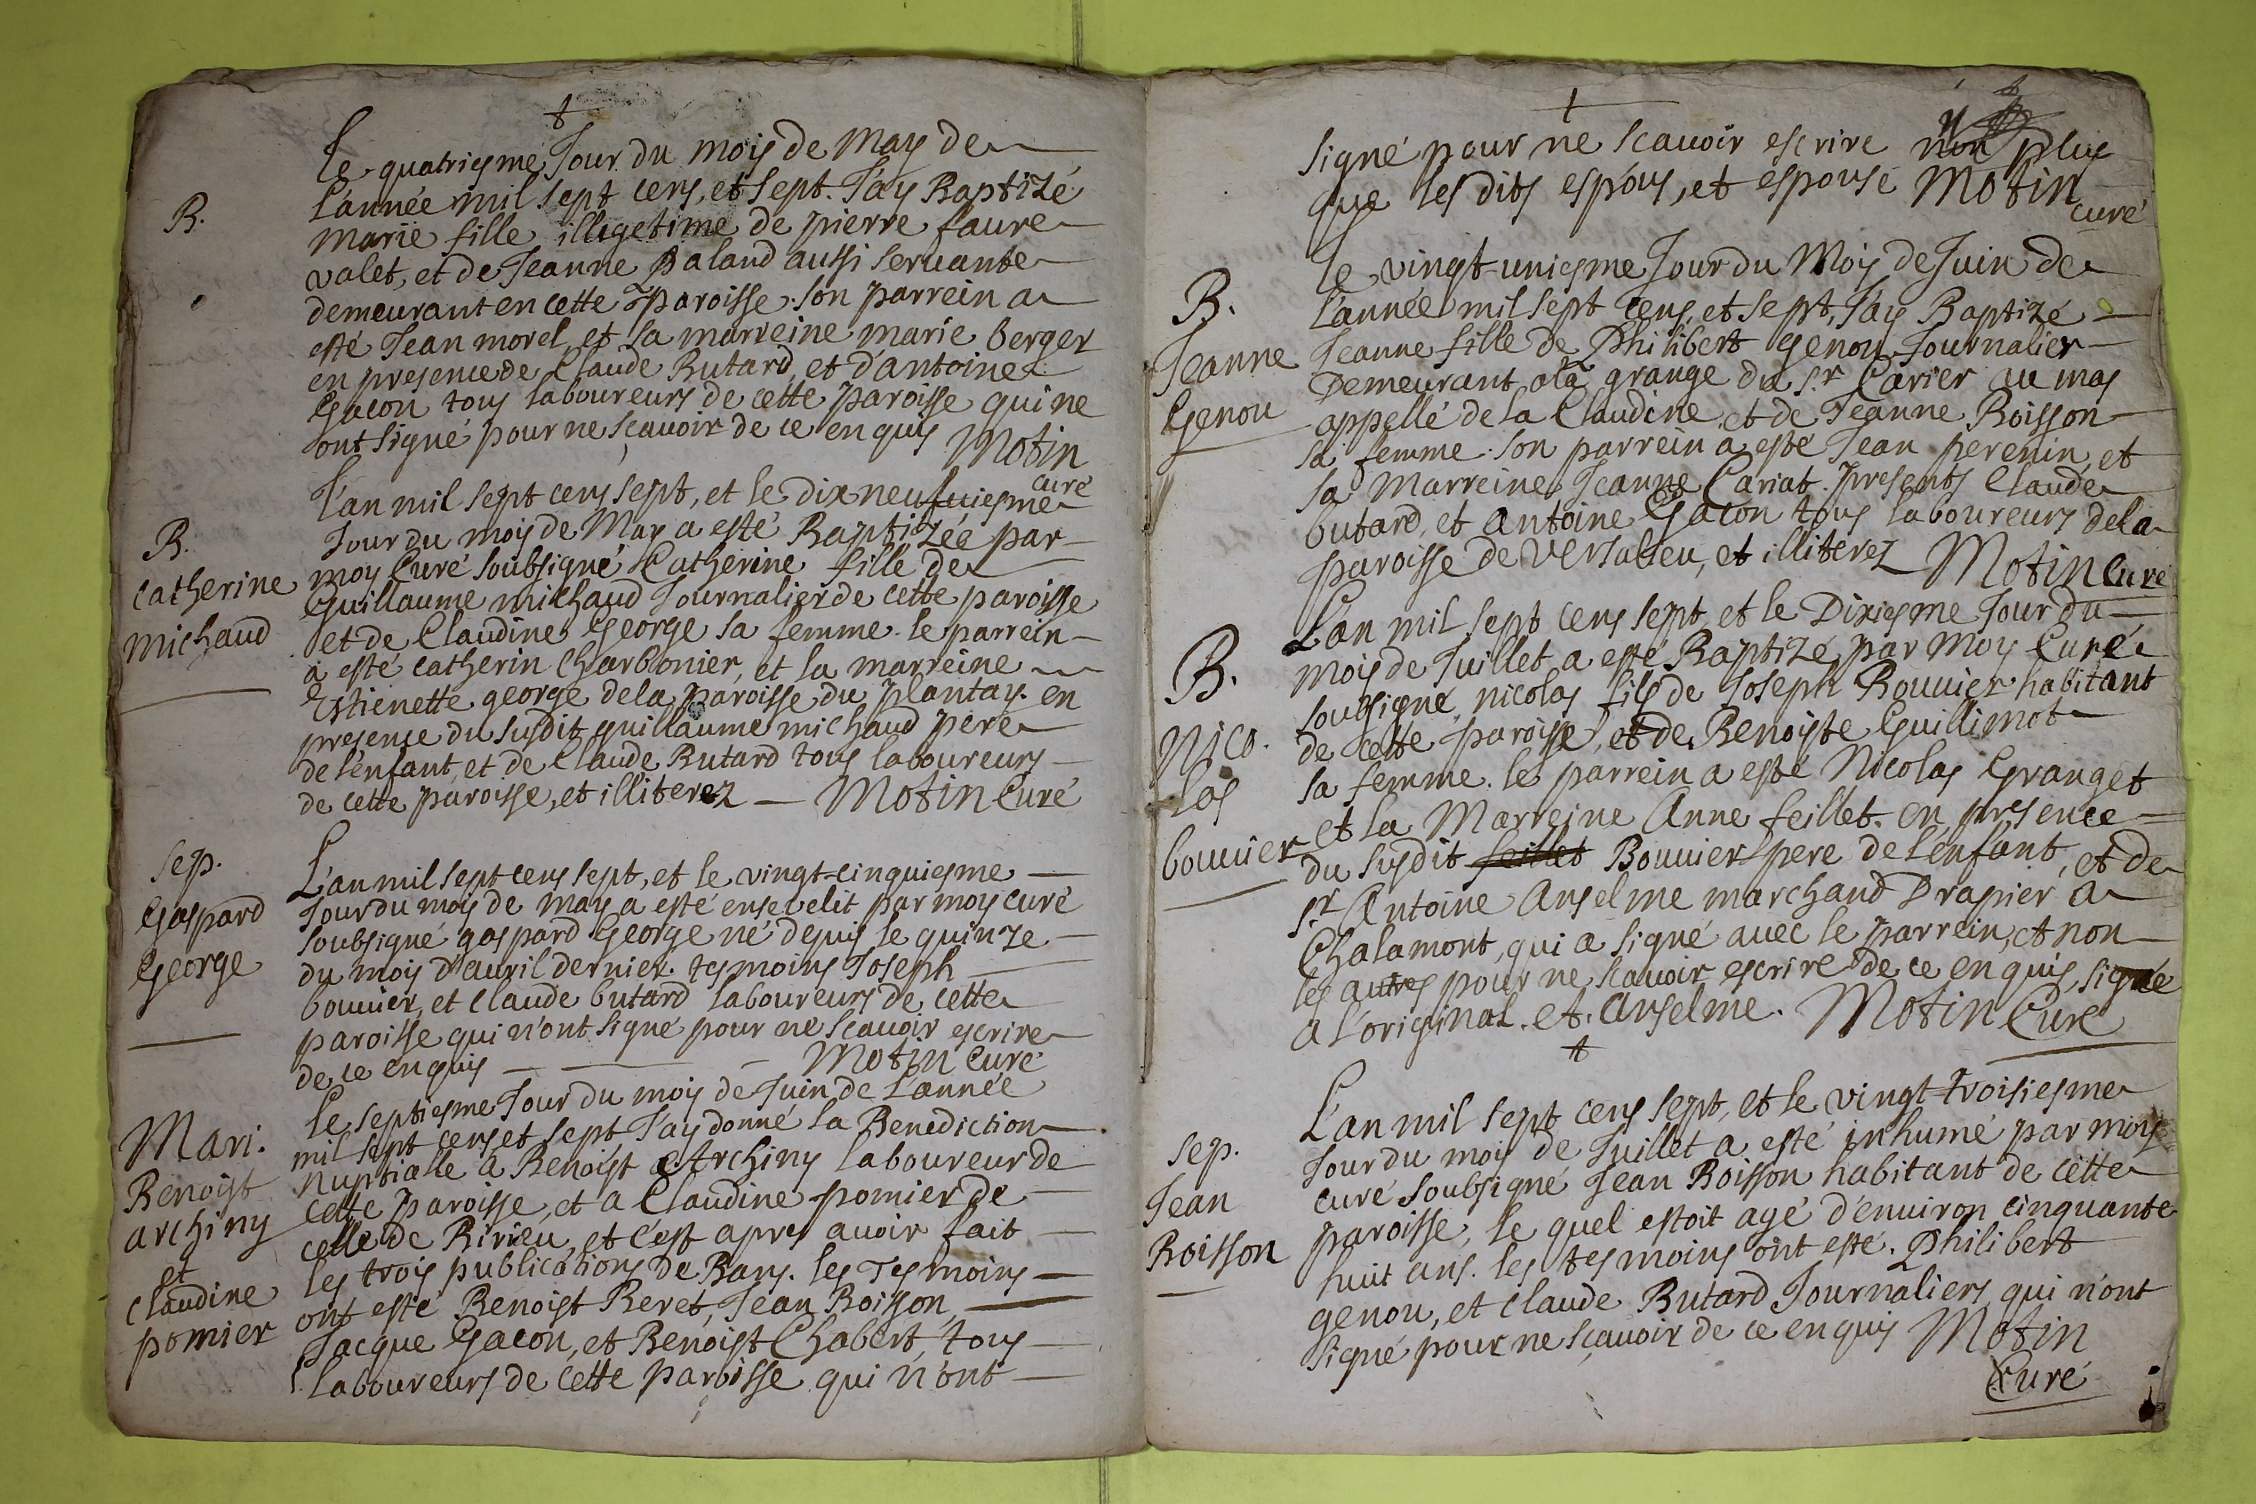 †
Le quatriesme Jour du mois de May de
L'année mil sept cens, et sept. J'ay Baptizé
B.
marie fille illegetime de pierre faure
valet, et de Jeanne Paland aussi servante
demeurant en cette paroisse. son parrein a
esté Jean morel, et sa marreine marie berger
en presence de Claude Butard, et d'antoine
Gacon tous laboureurs de cette paroisse qui ne
ont signé pour ne sçauoir de ce enquis Motin
curé
L'an mil sept cens sept, et le dix neufuiesme
Jour du mois de May a esté Baptizée par
B.
catherine
michaud
moy Curé soubsigné Catherine fille de
Guillaume michaud Journalier de cette paroisse
et de Claudine George sa femme. le parrein
a esté catherin Charbonier, et la marreine
Estienette george de la paroisse du plantay. en
presence du susdit guillaume michaud pere
de l'enfant, et de Claude Butard tous laboureurs
de cette paroisse, et illiterez — Motin Curé
Sep.
Gaspard
George
L'an mil sept cens sept, et le vingt-cinquiesme
Jour du mois de may a esté enseuelit par moy curé
soubsigné gaspard George né depuis le quinze
du mois d'auril dernier. tesmoins Joseph
bouuier, et claude butard laboureurs de cette
paroisse qui n'ont signé pour ne scauoir escrire
de ce enquis — Motin Curé
Mari.
Benoist
archiny
et
claudine
pomier
Le septiesme Jour du mois de Juin de L'année
mil sept cens et sept J'ay donné la Benediction
nuptialle a Benoist Archiny laboureur de
cette paroisse, et a Claudine pomier de
celle de Ririeu, et c'est apres auoir fait
les trois publications de Bans. les Tesmoins
ont esté Benoist Beret, Jean Boisson,
Jacque Gacon, et Benoist Chabert, tous
laboureurs de cette paroisse qui n'ont
†
signé pour ne scauoir escrire non plus
que les dits espous, et espouse Motin
curé
B.
Jeanne
Genou
Le vingt-uniesme Jour du Mois de Juin de
L'année mil sept cens, et sept, J'ay Baptizé
Jeanne fille de Philibert genou Journalier
Demeurant a la grange du sr. Carier au mas
appellé de la Claudine et de Jeanne Boisson
sa femme. son parrein a esté Jean perenin, et
sa Marreine Jeanne Cariat. presents Claude
butard, et antoine Gacon tous laboureurs de la
paroisse de Versalieu, et illiterez Motin Curé
B.
Nico.
las
bouuier
L'an mil sept cens sept, et le Dixiesme Jour du
mois de Juillet, a esté Baptizé par Moy Curé
soubsigné, nicolas fils de Joseph Bouuier habitant
de cette paroisse, et de Benoiste Guillimot
sa femme. le parrein a esté Nicolas Granget
et la Marreine Anne feillet. en presence
du susdit feillet Bouuier pere de l'enfant, et de
sr. Antoine Anselme marchand Drapier a
Chalamont, qui a signé auec le parrein, et non
les autres pour ne scauoir escrire de ce enquis, signé
a l'original. et. Anselme. Motin Curé
†
Sep.
Jean
Boisson
L'an mil sept cens sept, et le vingt-troisiesme
Jour du mois de Juillet a esté inhumé par moy
curé soubsigné Jean Boisson habitant de cette
paroisse, le quel estoit agé d'enuiron cinquante
huit ans. les tesmoins ont esté. Philibert
genou, et claude Butard Journaliers qui n'ont
signé pour ne sçauoir de ce enquis Motin
Curé